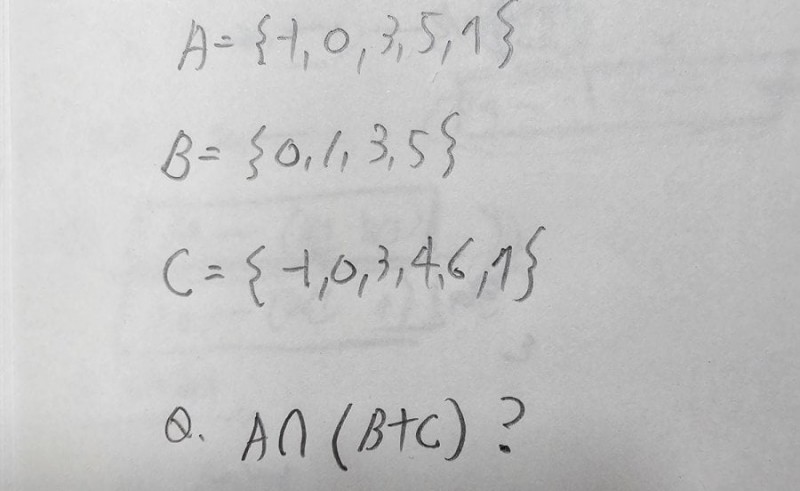 A={-1,0,3,5,7}
B={0,1,3,5}
C={-1,0,3,4,6,7}
Q. A∩(B+C)?